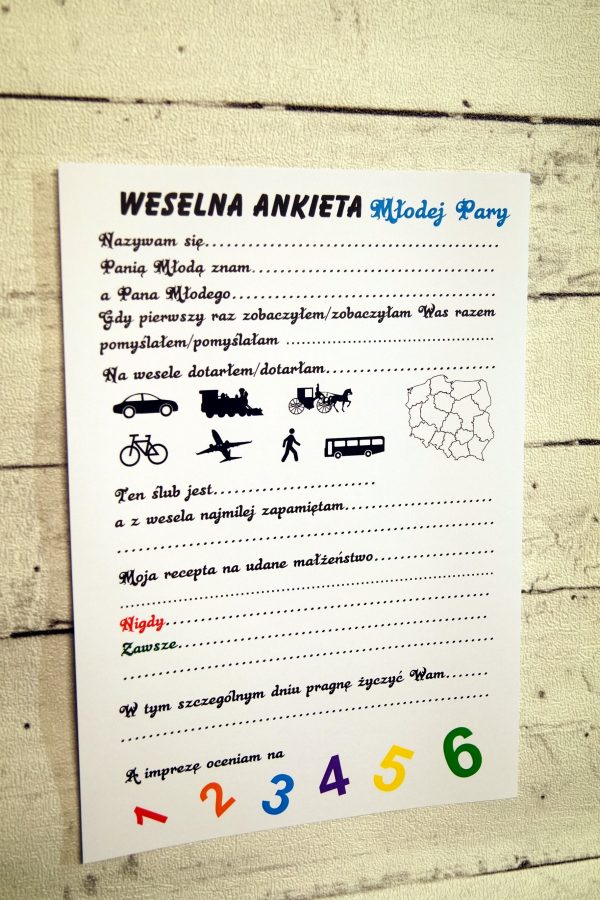 WESELNA ANKIETA Młodej Pary
Nazywam się................................................
Panią Młodą znam........................................
a Pana Młodego...........................................
Gdy pierwszy raz zobaczyłem/zobaczyłam Was razem
pomyślałem/pomyślałam ................................................
Na wesele dotarłem/dotarłam............................
Ten ślub jest...........................
a z wesela najmilej zapamiętam.........................
................................................................
Moja recepta na udane małżeństwo....................
................................................................
Nigdy........................................................
................................................................
Zawsze......................................................
................................................................
W tym szczególnym dniu pragnę życzyć Wam.......
................................................................
A imprezę oceniam na
1 2 3 4 5 6